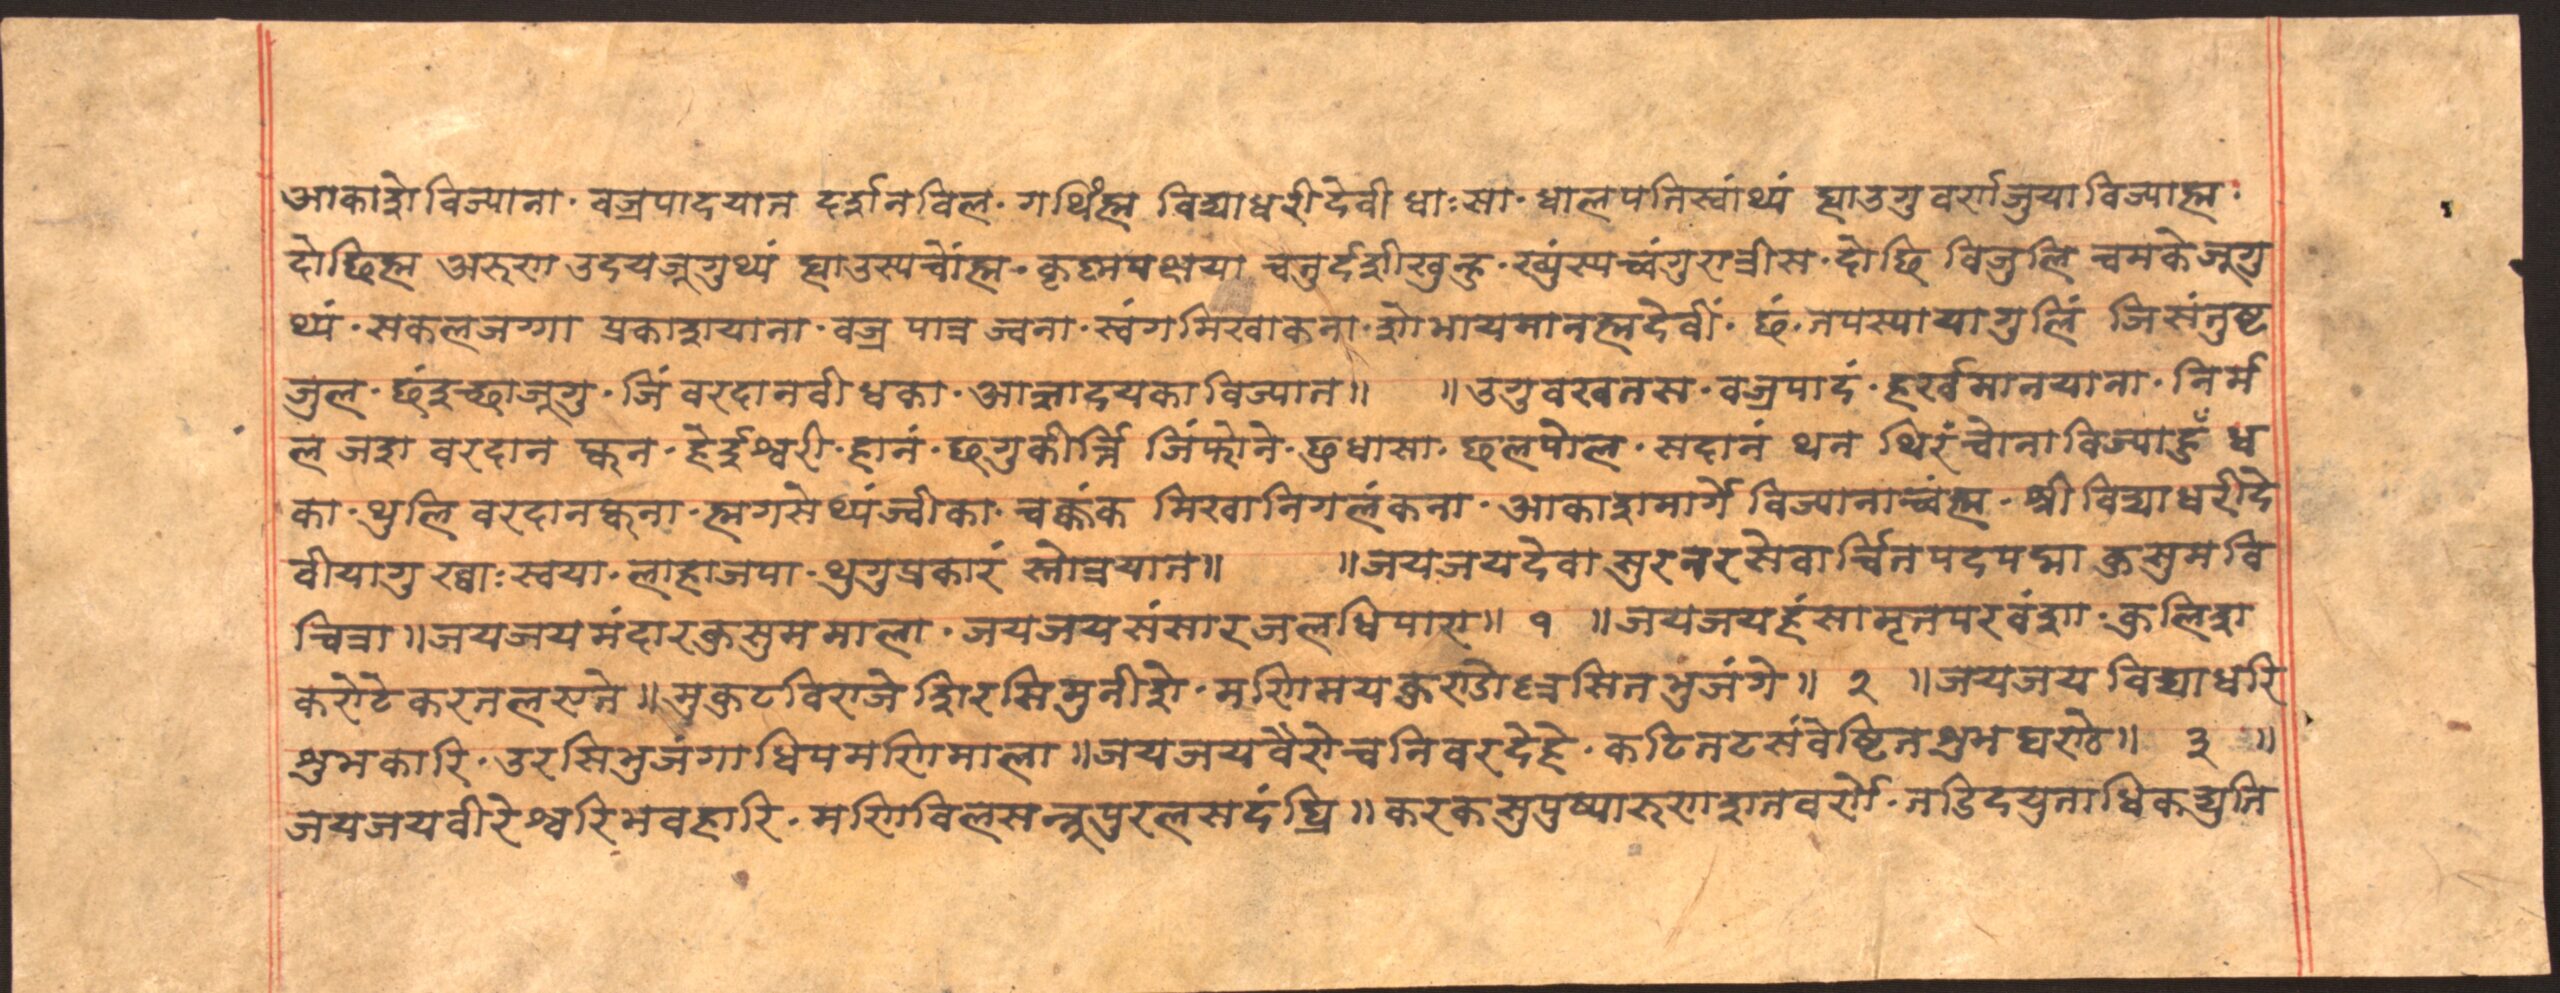 आकाशे विज्याना · वज्रपादयात दर्शनविल · गथिंह्म विद्याधरीदेवी धाःसा · धालपतिस्वांथ्यं ह्याउगु वर्णजुया विज्याह्म ·
दोछिह्म अरुण उदयजूगुथ्यं ह्याउस्यचोंह्म · कृष्णपक्षया चतुर्दशीखुन्हु · ख्युंस्यच्वंगु रात्रीस · दोछि विजुलि चमकेजूगु
थ्यं · सकलजगता प्रकाशयाना · वज्र पात्र ज्वना · स्वंगमिखाकना · शोभायमानह्मदेवीं · छं तपस्यायागुलिं जि संतुष्ट
जुल · छं इच्छाजूगु · जिं वरदानवी धका · आज्ञादयका विज्यात॥ ॥उगु वखतस · वज्रपादं · हर्खमानयाना · निर्म
ल जश वरदान फ्वन · हे ईश्वरी · हानं · छगु कीर्त्ति जिं फोने · छुधासा · छलपोल · सदानं थन थिरं चोना विज्याहुँ ध
का · थुलि वरदानफ्वना · ह्मगसेथ्यंज्वीका · चकंक मिखानिगलंकना · आकाशमार्गे विज्यानाच्वंह्म · श्री विद्याधरीदे
वीयागु ख्वाः स्वया · लाहाजपा · थुगुप्रकारं स्तोत्रयात॥ ॥जयजयदेवासुरनरसेवार्चितपदपद्मा कुसुमवि
चित्रा॥जयजयमंदारकुसुममाला · जयजयसंसारजलधिपारा॥ १ ॥जयजयहंसामृतपरवंश · कुलिश
करोटे करतलरत्ने॥मुकुटविराजे शिरसि मुनीशे · मणिमयकुण्डोहृत्रसितभुजंगे॥ २ ॥जयजय विद्याधरि
शुभकारि · उरसिभुजंगाधिपमणिमाला॥जयजयवैरोचनिवरदेहे · कटितटसंवेष्टितशुभघण्ठे॥ ३ ॥
जयजयवीरेश्वरिभवहारि · मणिविलसन्नुपुरलसदंघ्रि॥करकसुपुष्पारुणशतवर्णे · तडिदयुताधिकद्युति